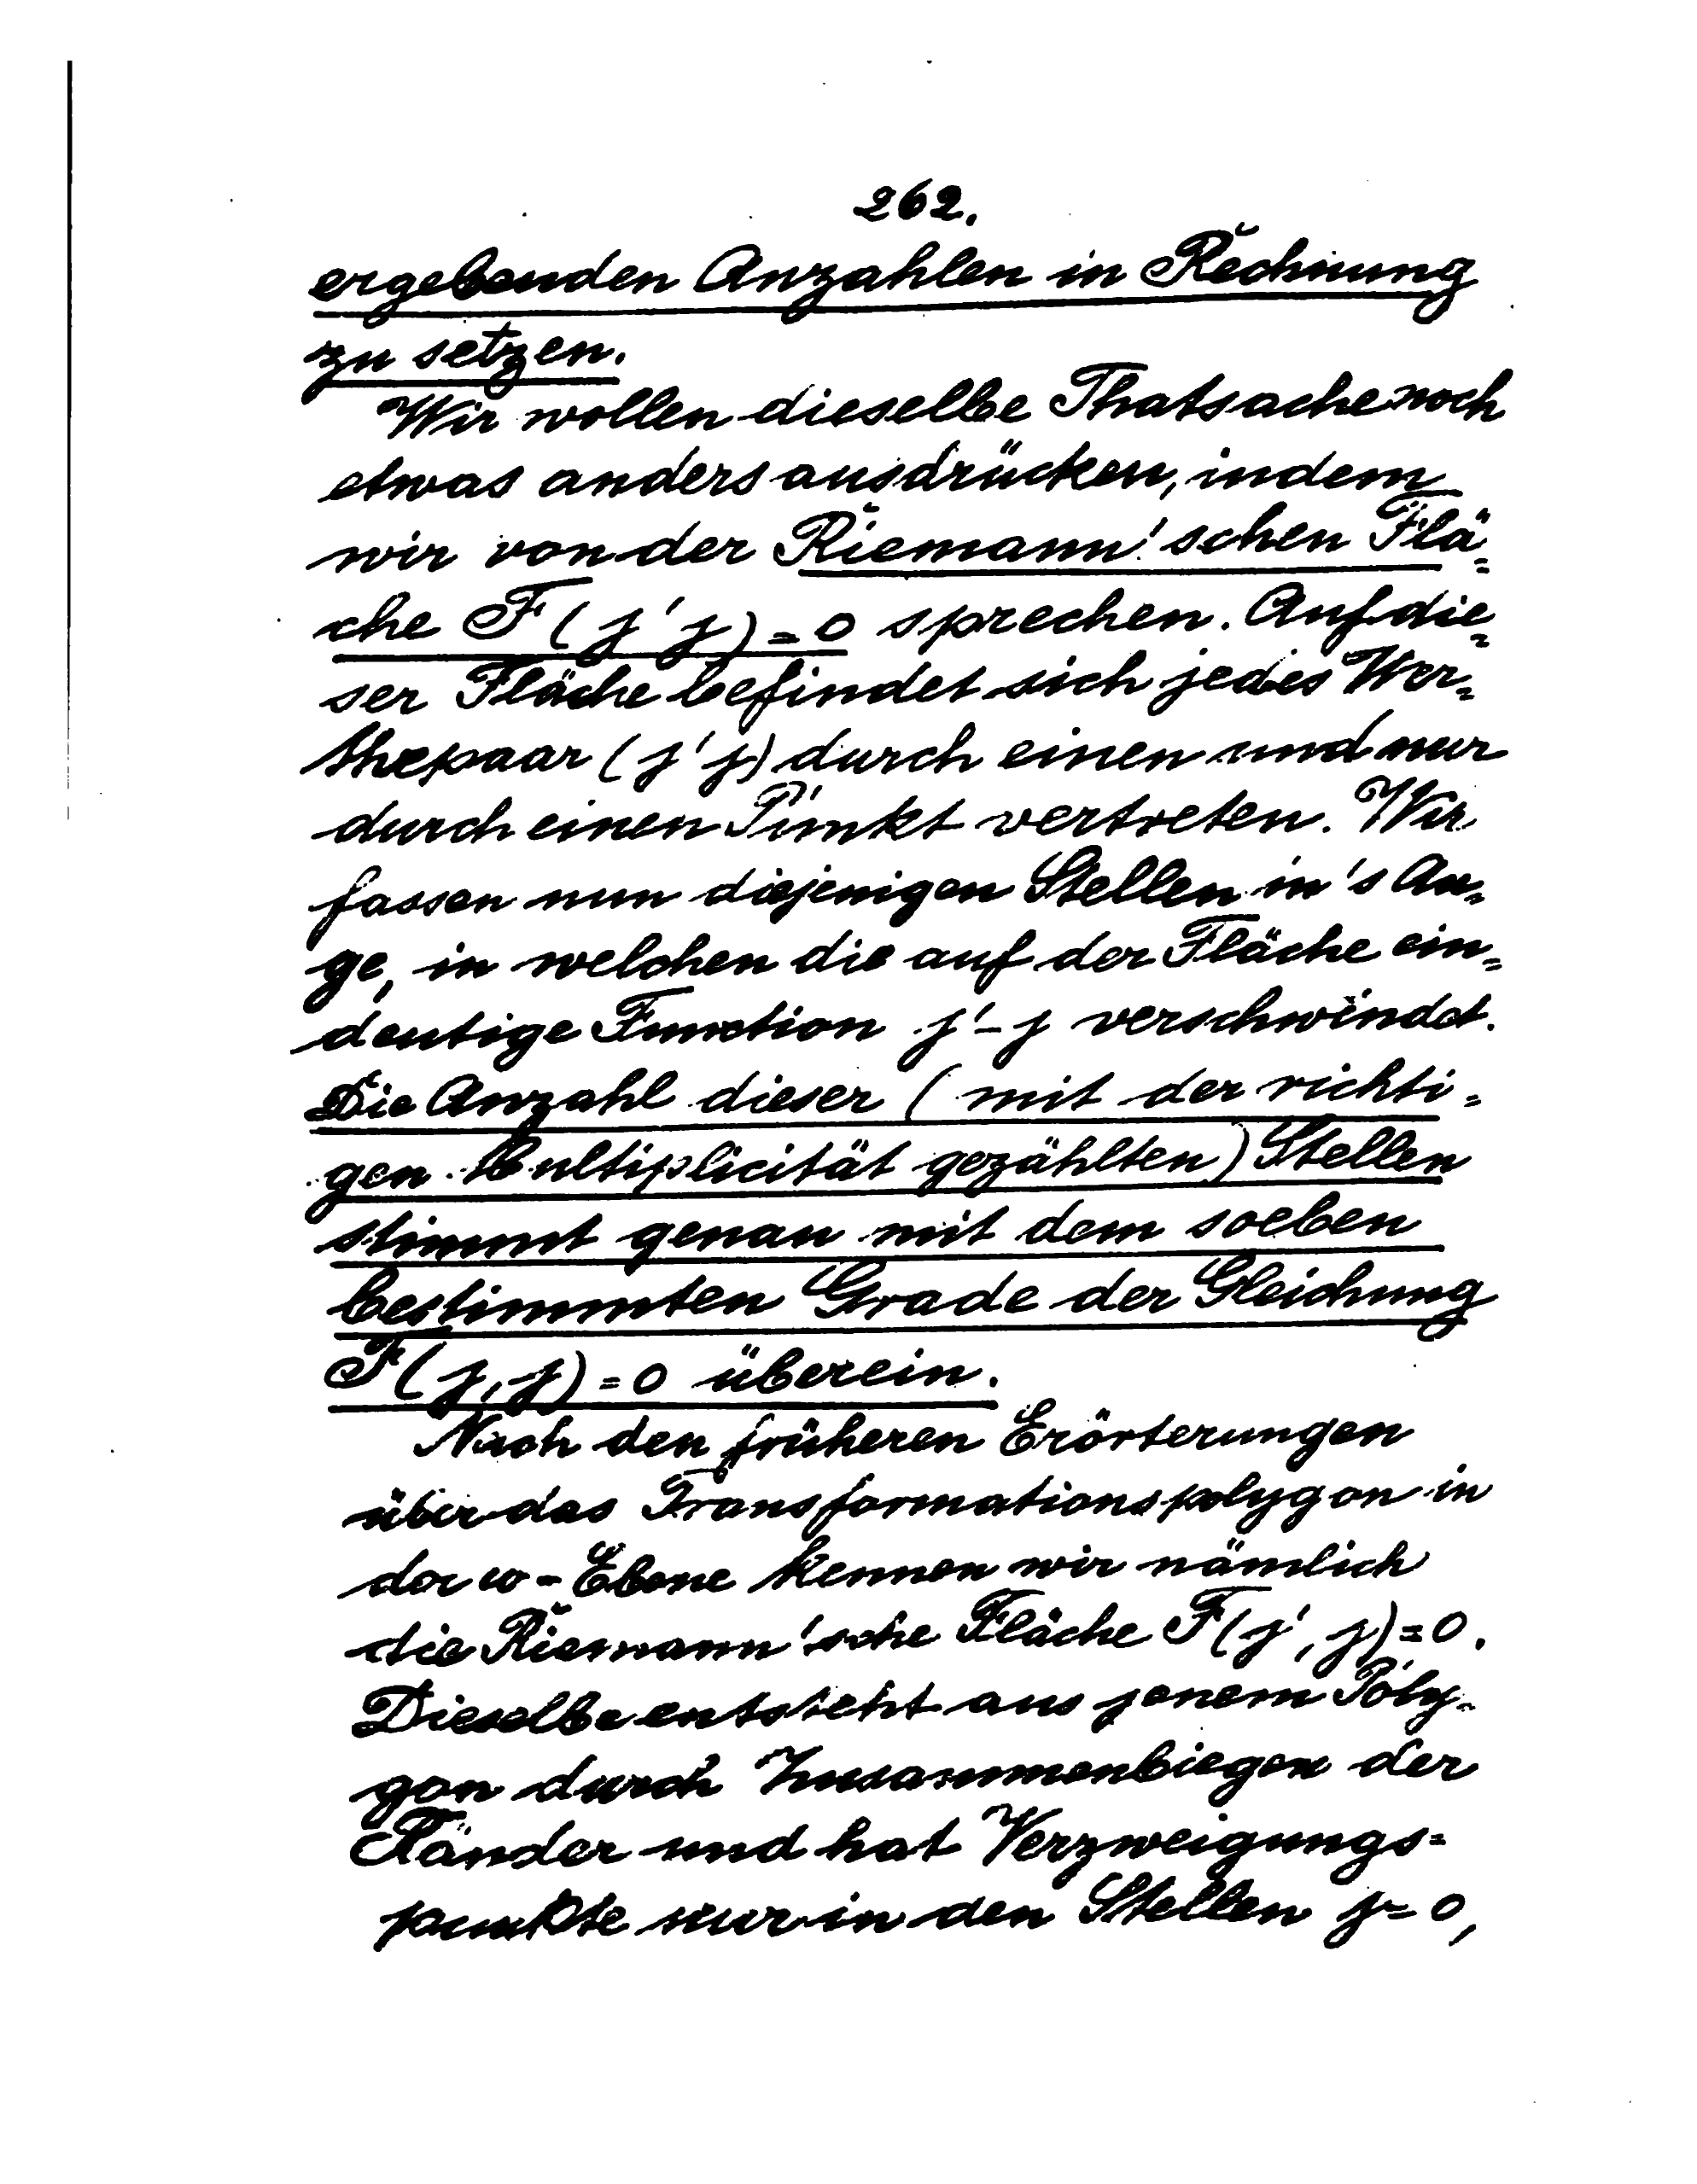 262.
ergebenden Anzahlen in Rechnung
zu setzen.
Wir wollen dieselbe Thatsache noch
etwas anders ausdrücken, indem
wir von der Riemann'schen Flä=
che F(j'j)=0 sprechen. Auf die=
ser Fläche befindet sich jedes Wer=
thepaar (j'j) durch einen und nur
durch einen Punkt vertreten. Wir
fassen nun diejenigen Stellen in's Au=
ge, in welchen die auf der Fläche ein=
deutige Function j'-j verschwindet.
Die Anzahl dieser (mit der richti=
gen Multiplicität gezählten) Stellen
stimmt genau mit dem soeben
bestimmten Grade der Gleichung
F(j,j)=0 überein.
Nach den früheren Erörterungen
über das Transformationspolygon in
der ω-Ebene kennen wir nämlich
die Riemann'sche Fläche F(j',j)=0.
Dieselbe entsteht aus jenem Poly=
gon durch Zusammenbiegen der
Ränder und hat Verzweigungs=
punkte nur in den Stellen j=0,